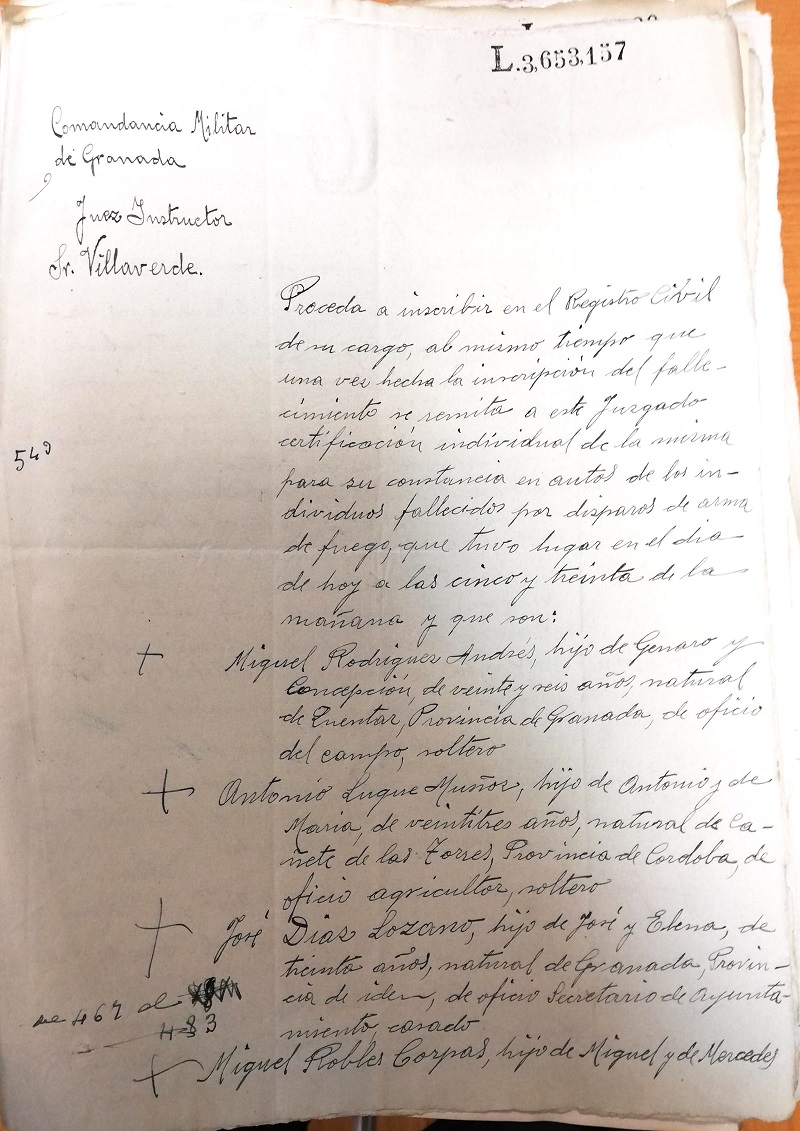 L.3,653,157
Comandancia Militar
de Granada
Juez Instructor
Sr. Villaverde.
Proceda a inscribir en el Registro Civil
de su cargo, al mismo tiempo que
una vez hecha la inscripción del falle-
cimiento se remita a este Juzgado
certificación individual de la misma
540
para su constancia en autos de los in-
dividuos fallecidos por disparos de arma
de fuego, que tuvo lugar en el dia
de hoy a las cinco y treinta de la
mañana y que son:
Miguel Rodriguez Andrés, hijo de Genaro y
Concepción, de veinte y seis años, natural
de Quentar, Provincia de Granada, de oficio
del campo, soltero
Antonio Luque Muñoz, hijo de Antonio y de
Maria, de veintitres años, natural de Ca-
ñete de las Torres, Provincia de Cordoba, de
oficio agricultor, soltero
José Diaz Lozano, hijo de José y Elena, de
treinta años, natural de Granada, Provin-
cia de iden, de oficio Secretario de Ayunta-
miento, casado
467 al
483
Miguel Robles Corpas, hijo de Miguel y de Mercedes